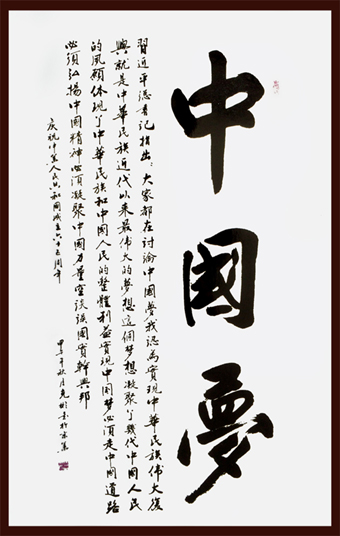 中國夢
習近平总书记指出：大家都在討論中國夢我認為實現中華民族偉大復
興就是中華民族近代以来最偉大的夢想這個夢想凝聚了幾代中國人民
的夙願体現了中華民族和中國人民的整體利益實現中国梦必須走中國道路
必須弘揚中國精神必須凝聚中國力量空談誤國實幹興邦
庆祝中华人民共和国成立六十五周年
甲午年秋月克